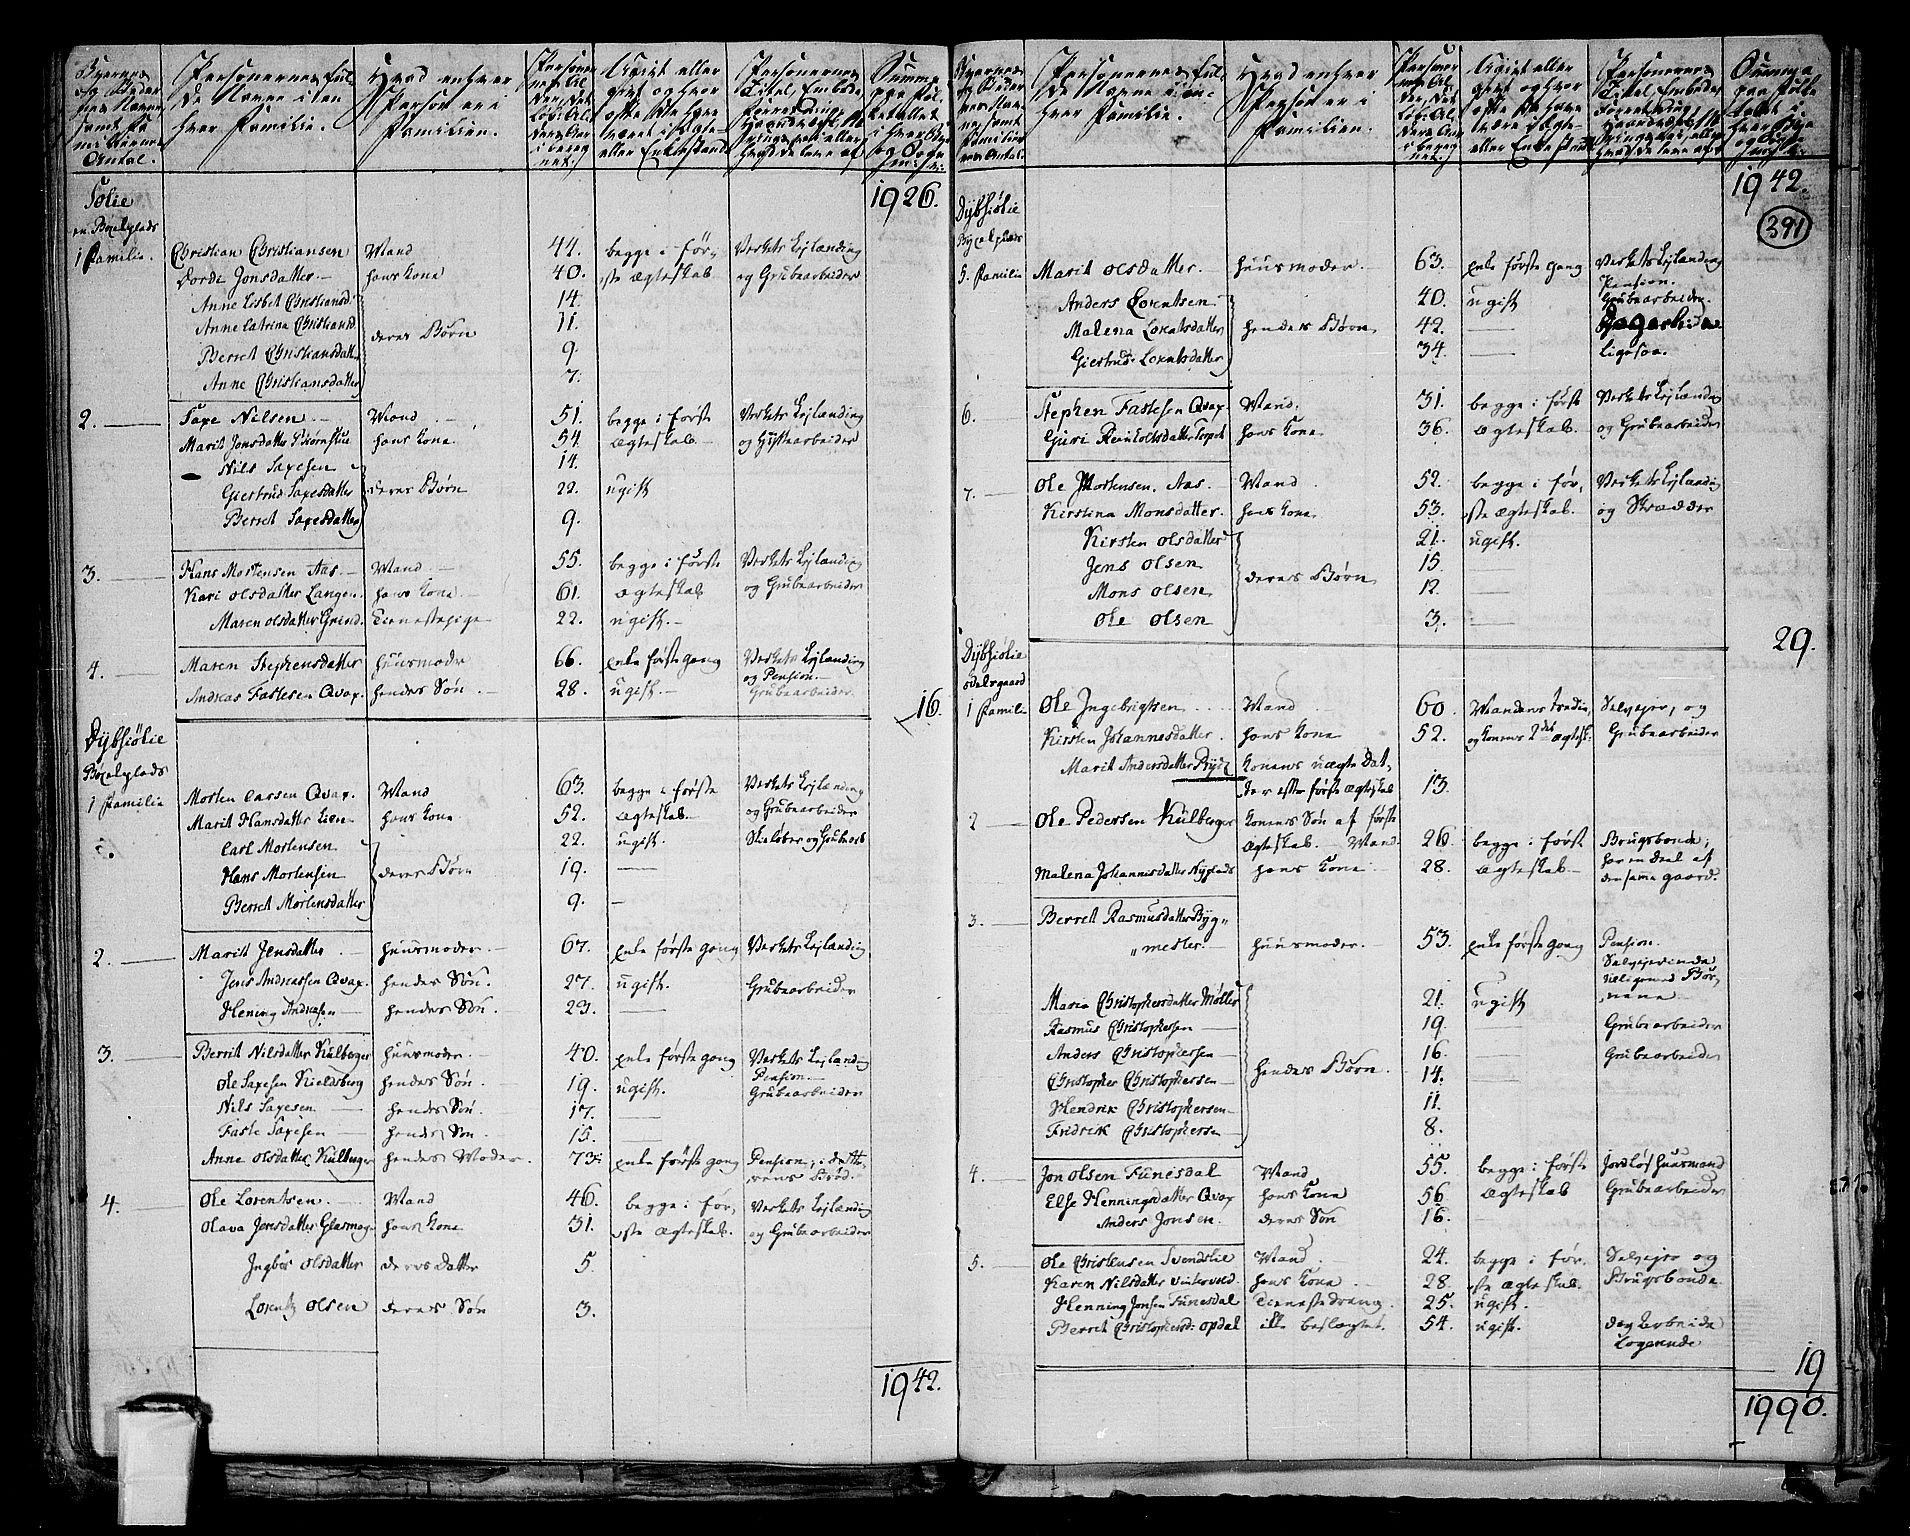 Personernes ful-
de Navne i en
hver Familie.
Hvad enhver
Person er i
Familien.
1926.
Solie
en Boxelplads
1 Familie.
Christian Christiansen Mand 44. begge i før- Verkets Lejlænding
Dordi Jonsdatter hans Kone 40. ste Ægteskab og Grubearbeider
Anne Lisbet Christiansd. 14.
Anne Catrina Christiansd. deres Børn 11.
Berret Christiansdatter 9.
Anne Christiansdatter 7.
2. Saxe Nilsen Mand 51. begge i første Verkets Lejlænding
Marit Jonsdatter hans Kone 54. Ægteskab og Hyttearbeider
Nils Saxesen 14.
Giertrud Saxesdatter deres Børn 22. ugift
Berret Saxesdatter 9.
3. Hans Mortensen Aas Mand 55. begge i første Verkets Lejlænding
Kari Olsdatter Langen hans Kone 61. Ægteskab og Grubearbeider
Maren Olsdatter Grind. Tienestepige 22. ugift
4. Maren Stephensdatter Huusmoder 66. enke første gang Verkets Lejlænding
og Pension
Andreas Fastesen Qvax. hendes Søn 28. ugift Grubearbeider
16.
Dybsiølie
Boxelplads
1 Familie
Morten Larsen Qvax. Mand 63. begge i første Verkets Lejlænding
Marit Hansdatter Lien hans Kone 52. Ægteskab. og Grubearbeider
Carl Mortensen 22. ugift.
Hans Mortensen deres Børn 19. —
Berret Mortensdatter 9. —
2. Marit Jensdatter Huusmoder 67. enke første gang Verkets Lejlænding
Jens Andreassen Qvax. hendes Søn. 27. ugift. Grubearbeider
Hening Andreasen hendes Søn. 23. —
3. Berrit Nilsdatter Kulberger Huusmoder 40. enke første gang Verkets Lejlænding
Pension
Ole Saxesen Kieldsberg hendes Søn 19. ugift. Grubearbeider
Nils Saxesen hendes Søn. 17. —
Faste Saxesen hendes Søn. 15. —
Anne Olsdatter Kulberger hendes Moder. 73. enke første gang Pension, i datte-
rens Brød.
4. Ole Lorentsen Mand 46. begge i før- Verkets Lejlænding
Olava Jensdatter Glasmag. hans Kone 31. ste Ægteskab. og Grubearbeider
Ingbor Olsdatter deres Datter 5.
Lorentz Olsen deres Søn 3.
1942.
Personernes ful-
de Navne i en-
hver Familie.
Hvad enhver
Person er i
Familien.
1942.
391
Dybsiølie
Boxelplads
5. Familie Marit Olsdatter. Huusmoder. 63. enke første gang Verkets Lejlænding
Pension.
Anders Lorentsen 40. ugift Grubearbeider.
Malena Lorentsdatter hendes Børn 42. —
Giertrud Lorentsdatter 34. — ligesaa.
6. Stephen Fastesen Qvax. Mand. 31. begge i første Verkets Lejlænding
Guri Reinholtsdatter hans Kone 36. Ægteskab. og Grubearbeider
7. Ole Mortensen Aas. Mand 52. begge i før- Verkets Lejlænding
Kirstina Monsdatter. hans Kone 53. ste Ægteskab. og Skrædder
Kirsten Olsdatter 21. ugift.
Jens Olsen 15. —
Mons Olsen deres Børn 12. —
Ole Olsen 3. —
29.
Dybsiølie
Odelsgaard
1 Familie Ole Ingebrigtsen Mand 60. Mandens tredie, Selvejer, og
Kirsten Johannesdatter. hans Kone 52. og Konens 2det Ægtesk. Grubearbeider
Marit Andersdatter Konens uægte Dat-
ter efter første Ægteskab 13.
2 Ole Pedersen Kulberger Konens Søn af første
Ægteskab. Mand. 26. begge i første Brugsbonde,
har en deel af
Malena Johannisdatter Nyplads hans Kone 28. Ægteskab den samme gaard.
3. Berret Rasmusdatter Byg-
mester. Huusmoder. 53. enke første gang Pension.
Selvejerinde
Maria Christophersdatter Møller 21. ugift
Rasmus Christophersen 19. Grubearbeider
Anders Christophersen 16. Grubearbeider
Christopher Christophersen hendes Børn. 14.
Hendrik Christophersen 11.
Fridrik Christophersen 8.
4. Jon Olsen Funesdal Mand 55. begge i første Jordløs Huusmand
Else Henningsdatter Qvax hans Kone 56. Ægteskab Grubearbeider
Anders Jonsen. deres Søn 16. —
5. Ole Christensen Svendslie Mand 24. begge i før- Selvejer og
Karen Nilsdatter Vintervold. hans Kone 28. ste Ægteskab. Brugsbonde
Henning Jonsen Funesdal Tienestedreng 25. ugift.
Berret Christophersd: Opdal ikke beslægtet. 54. ugift. dag Arbeide
Logerende
19
1990.